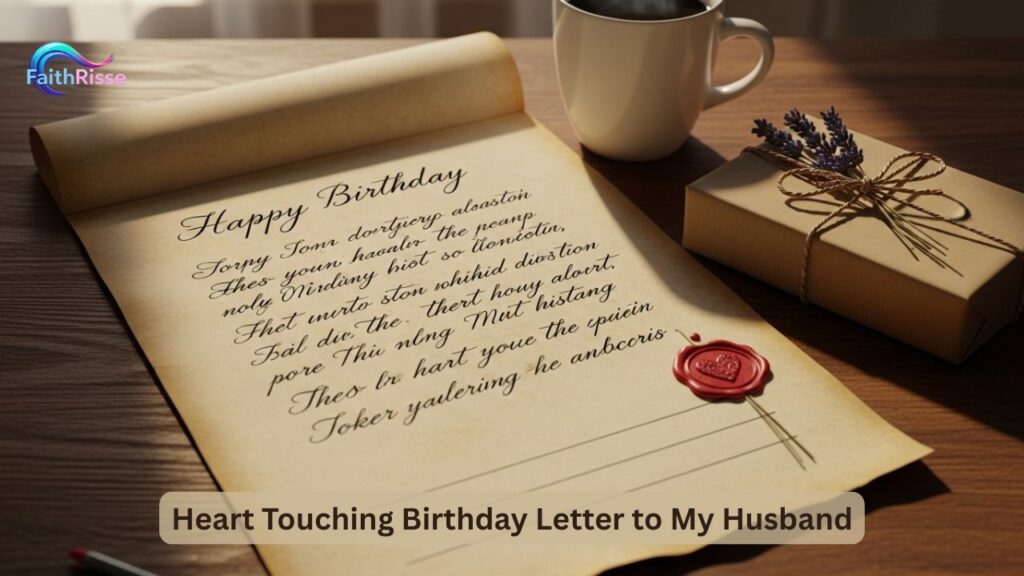 FaithRisse
Happy Birthday
Forpy Tomr doertjierp aleaston
Thes youn haealer the peeanp
noly Mirdliny hist so llonietin,
Fhet unurto ston whihid diastion
Bal due the. thert houy alovrt.
pore Thii nlng Mut histang
Thes lr hart youe the
Joker he
Heart Touching Birthday Letter to My Husband